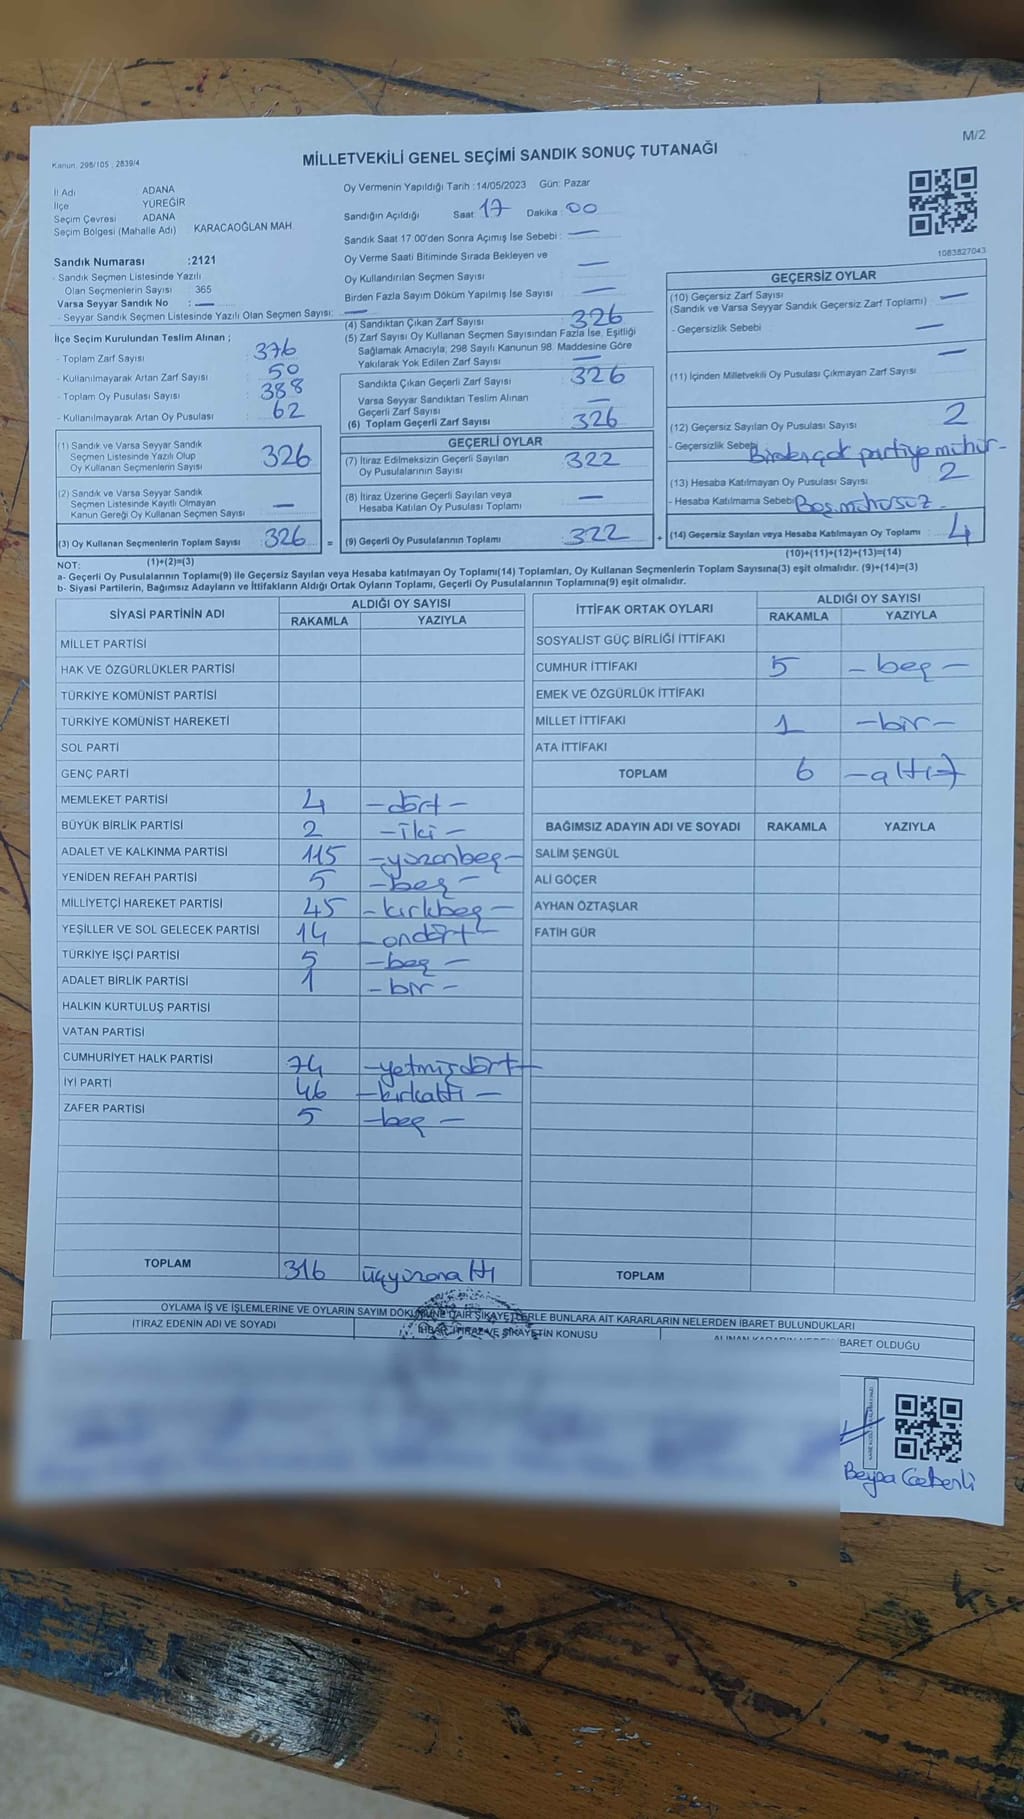 M/2
Kanun. 298/105 2839/4
MİLLETVEKİLİ GENEL SEÇİMİ SANDIK SONUÇ TUTANAĞI
İl Adı ADANA
İlçe YÜREĞİR
Seçim Çevresi ADANA
Seçim Bölgesi (Mahalle Adı) KARACAOĞLAN MAH
Sandık Numarası :2121
- Sandık Seçmen Listesinde Yazılı
Olan Seçmenlerin Sayısı : 365
Varsa Seyyar Sandık No : —
- Seyyar Sandık Seçmen Listesinde Yazılı Olan Seçmen Sayısı: —
İlçe Seçim Kurulundan Teslim Alınan ;
- Toplam Zarf Sayısı : 376
- Kullanılmayarak Artan Zarf Sayısı : 50
- Toplam Oy Pusulası Sayısı : 388
- Kullanılmayarak Artan Oy Pusulası : 62
(1) Sandık ve Varsa Seyyar Sandık
Seçmen Listesinde Yazılı Olup
Oy Kullanan Seçmenlerin Sayısı 326
(2) Sandık ve Varsa Seyyar Sandık
Seçmen Listesinde Kayıtlı Olmayan
Kanun Gereği Oy Kullanan Seçmen Sayısı —
(3) Oy Kullanan Seçmenlerin Toplam Sayısı 326 =
(1)+(2)=(3)
Oy Vermenin Yapıldığı Tarih :14/05/2023 Gün: Pazar
Sandığın Açıldığı Saat: 17 Dakika : 00
Sandık Saat 17.00'den Sonra Açımış İse Sebebi : —
Oy Verme Saati Bitiminde Sırada Bekleyen ve
Oy Kullandırılan Seçmen Sayısı : —
Birden Fazla Sayım Döküm Yapılmış İse Sayısı : —
(4) Sandıktan Çıkan Zarf Sayısı : 326
(5) Zarf Sayısı Oy Kullanan Seçmen Sayısından Fazla İse, Eşitliği
Sağlamak Amacıyla, 298 Sayılı Kanunun 98. Maddesine Göre
Yakılarak Yok Edilen Zarf Sayısı : —
Sandıkta Çıkan Geçerli Zarf Sayısı : 326
Varsa Seyyar Sandıktan Teslim Alınan
Geçerli Zarf Sayısı : —
(6) Toplam Geçerli Zarf Sayısı : 326
GEÇERLİ OYLAR
(7) İtiraz Edilmeksizin Geçerli Sayılan
Oy Pusulalarının Sayısı : 322
(8) İtiraz Üzerine Geçerli Sayılan veya
Hesaba Katılan Oy Pusulası Toplamı : —
(9) Geçerli Oy Pusulalarının Toplamı : 322 +
1083827043
GEÇERSİZ OYLAR
(10) Geçersiz Zarf Sayısı : —
(Sandık ve Varsa Seyyar Sandık Geçersiz Zarf Toplamı)
- Geçersizlik Sebebi : —
—
(11) İçinden Milletvekili Oy Pusulası Çıkmayan Zarf Sayısı
(12) Geçersiz Sayılan Oy Pusulası Sayısı : 2
- Geçersizlik Sebebi partiye mühür-
(13) Hesaba Katılmayan Oy Pusulası Sayısı : 2
- Hesaba Katılmama Sebebi:
(14) Geçersiz Sayılan veya Hesaba Katılmayan Oy Toplamı : 4
(10)+(11)+(12)+(13)=(14)
NOT:
a- Geçerli Oy Pusulalarının Toplamı(9) ile Geçersiz Sayılan veya Hesaba katılmayan Oy Toplamı(14) Toplamları, Oy Kullanan Seçmenlerin Toplam Sayısına(3) eşit olmalıdır. (9)+(14)=(3)
b- Siyasi Partilerin, Bağımsız Adayların ve İttifakların Aldığı Ortak Oyların Toplamı, Geçerli Oy Pusulalarının Toplamına(9) eşit olmalıdır.
SİYASİ PARTİNİN ADI ALDIĞI OY SAYISI
RAKAMLA YAZIYLA
MİLLET PARTİSİ
HAK VE ÖZGÜRLÜKLER PARTİSİ
TÜRKİYE KOMÜNİST PARTİSİ
TÜRKİYE KOMÜNİST HAREKETİ
SOL PARTİ
GENÇ PARTİ
MEMLEKET PARTİSİ 4 -dört-
BÜYÜK BİRLİK PARTİSİ 2 -iki-
ADALET VE KALKINMA PARTİSİ 115 -yüzonbeş-
YENİDEN REFAH PARTİSİ 5 -beş-
MİLLİYETÇİ HAREKET PARTİSİ 45 -kırkbeş-
YEŞİLLER VE SOL GELECEK PARTİSİ 14 -ondört-
TÜRKİYE İŞÇİ PARTİSİ 5 -beş-
ADALET BİRLİK PARTİSİ 1 -bir-
HALKIN KURTULUŞ PARTİSİ
VATAN PARTİSİ
CUMHURİYET HALK PARTİSİ 74 -yetmişdört-
İYİ PARTİ 46 -kırkaltı-
ZAFER PARTİSİ 5 -beş-
TOPLAM 316 üçyüzonaltı
İTTİFAK ORTAK OYLARI ALDIĞI OY SAYISI
RAKAMLA YAZIYLA
SOSYALİST GÜÇ BİRLİĞİ İTTİFAKI
CUMHUR İTTİFAKI 5 -beş-
EMEK VE ÖZGÜRLÜK İTTİFAKI
MİLLET İTTİFAKI 1 -bir-
ATA İTTİFAKI
TOPLAM 6 -altı-
BAĞIMSIZ ADAYIN ADI VE SOYADI RAKAMLA YAZIYLA
SALİM ŞENGÜL
ALİ GÖÇER
AYHAN ÖZTAŞLAR
FATİH GÜR
TOPLAM
OYLAMA İŞ VE İŞLEMLERİNE VE OYLARIN SAYIM DÖKÜMÜNE DAİR ŞİKAYETLERLE BUNLARA AİT KARARLARIN NELERDEN İBARET BULUNDUKLARI
İTİRAZ EDENİN ADI VE SOYADI İHBAR, İTİRAZ VE ŞİKAYETİN KONUSU BARET OLDUĞU